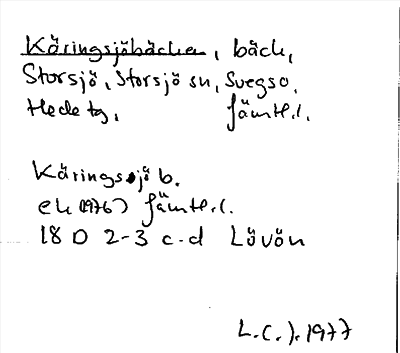 Käringsjöbäcken, bäck,
Storsjö, Storsjö sn, Svegs o.
Hede tg, Jämtl. l.
Käringsjö b.
ek (1976) Jämtl. l.
18 D 2-3 c-d Lövön
L.C.J. 1977